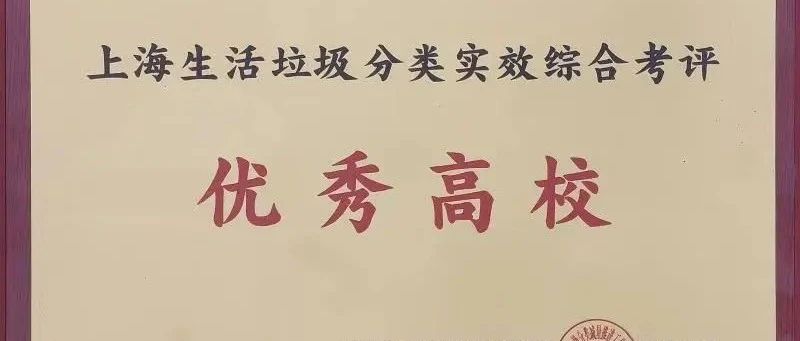 上海生活垃圾分类实效综合考评
优秀高校